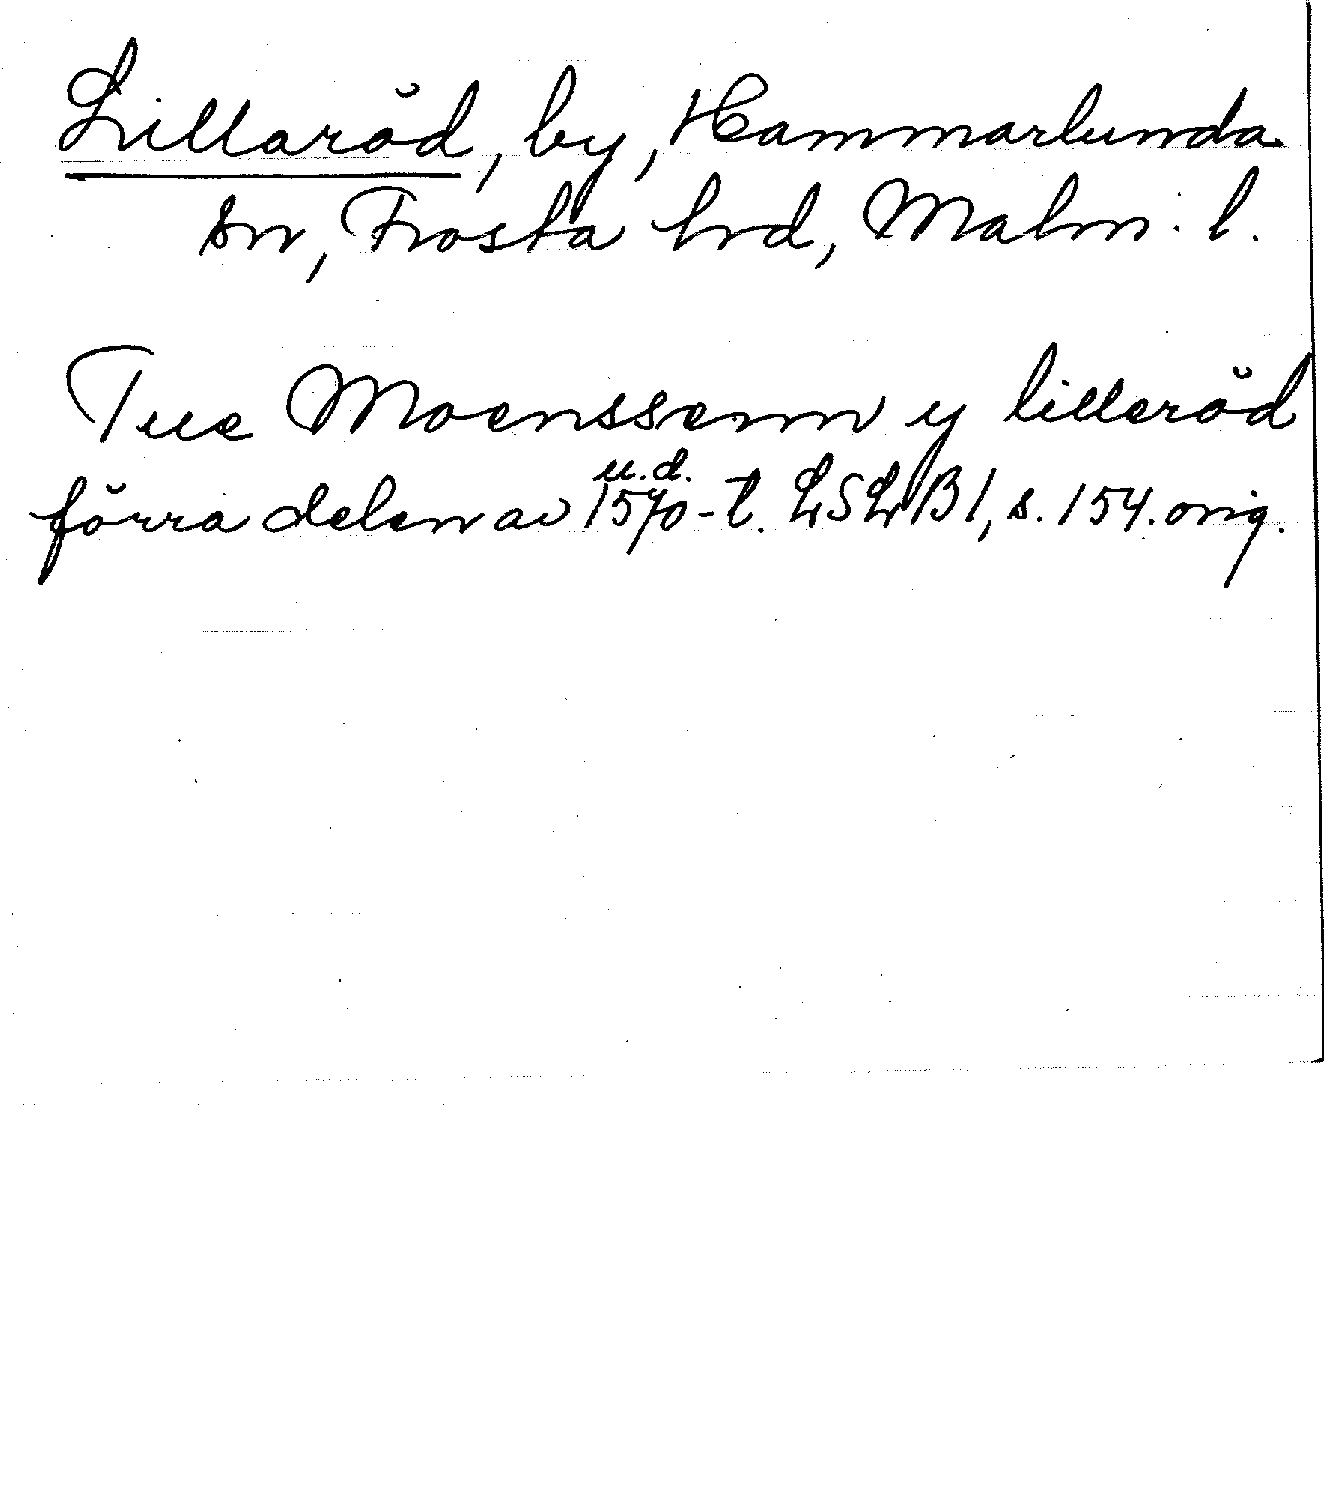 Lillaröd, by, Hammarlunda
sn, Frosta hrd, Malm. l.
Tue Moenssenn y lilleröd
u.d.
förra delen av 1570-t. LSLB1, s. 154. orig.